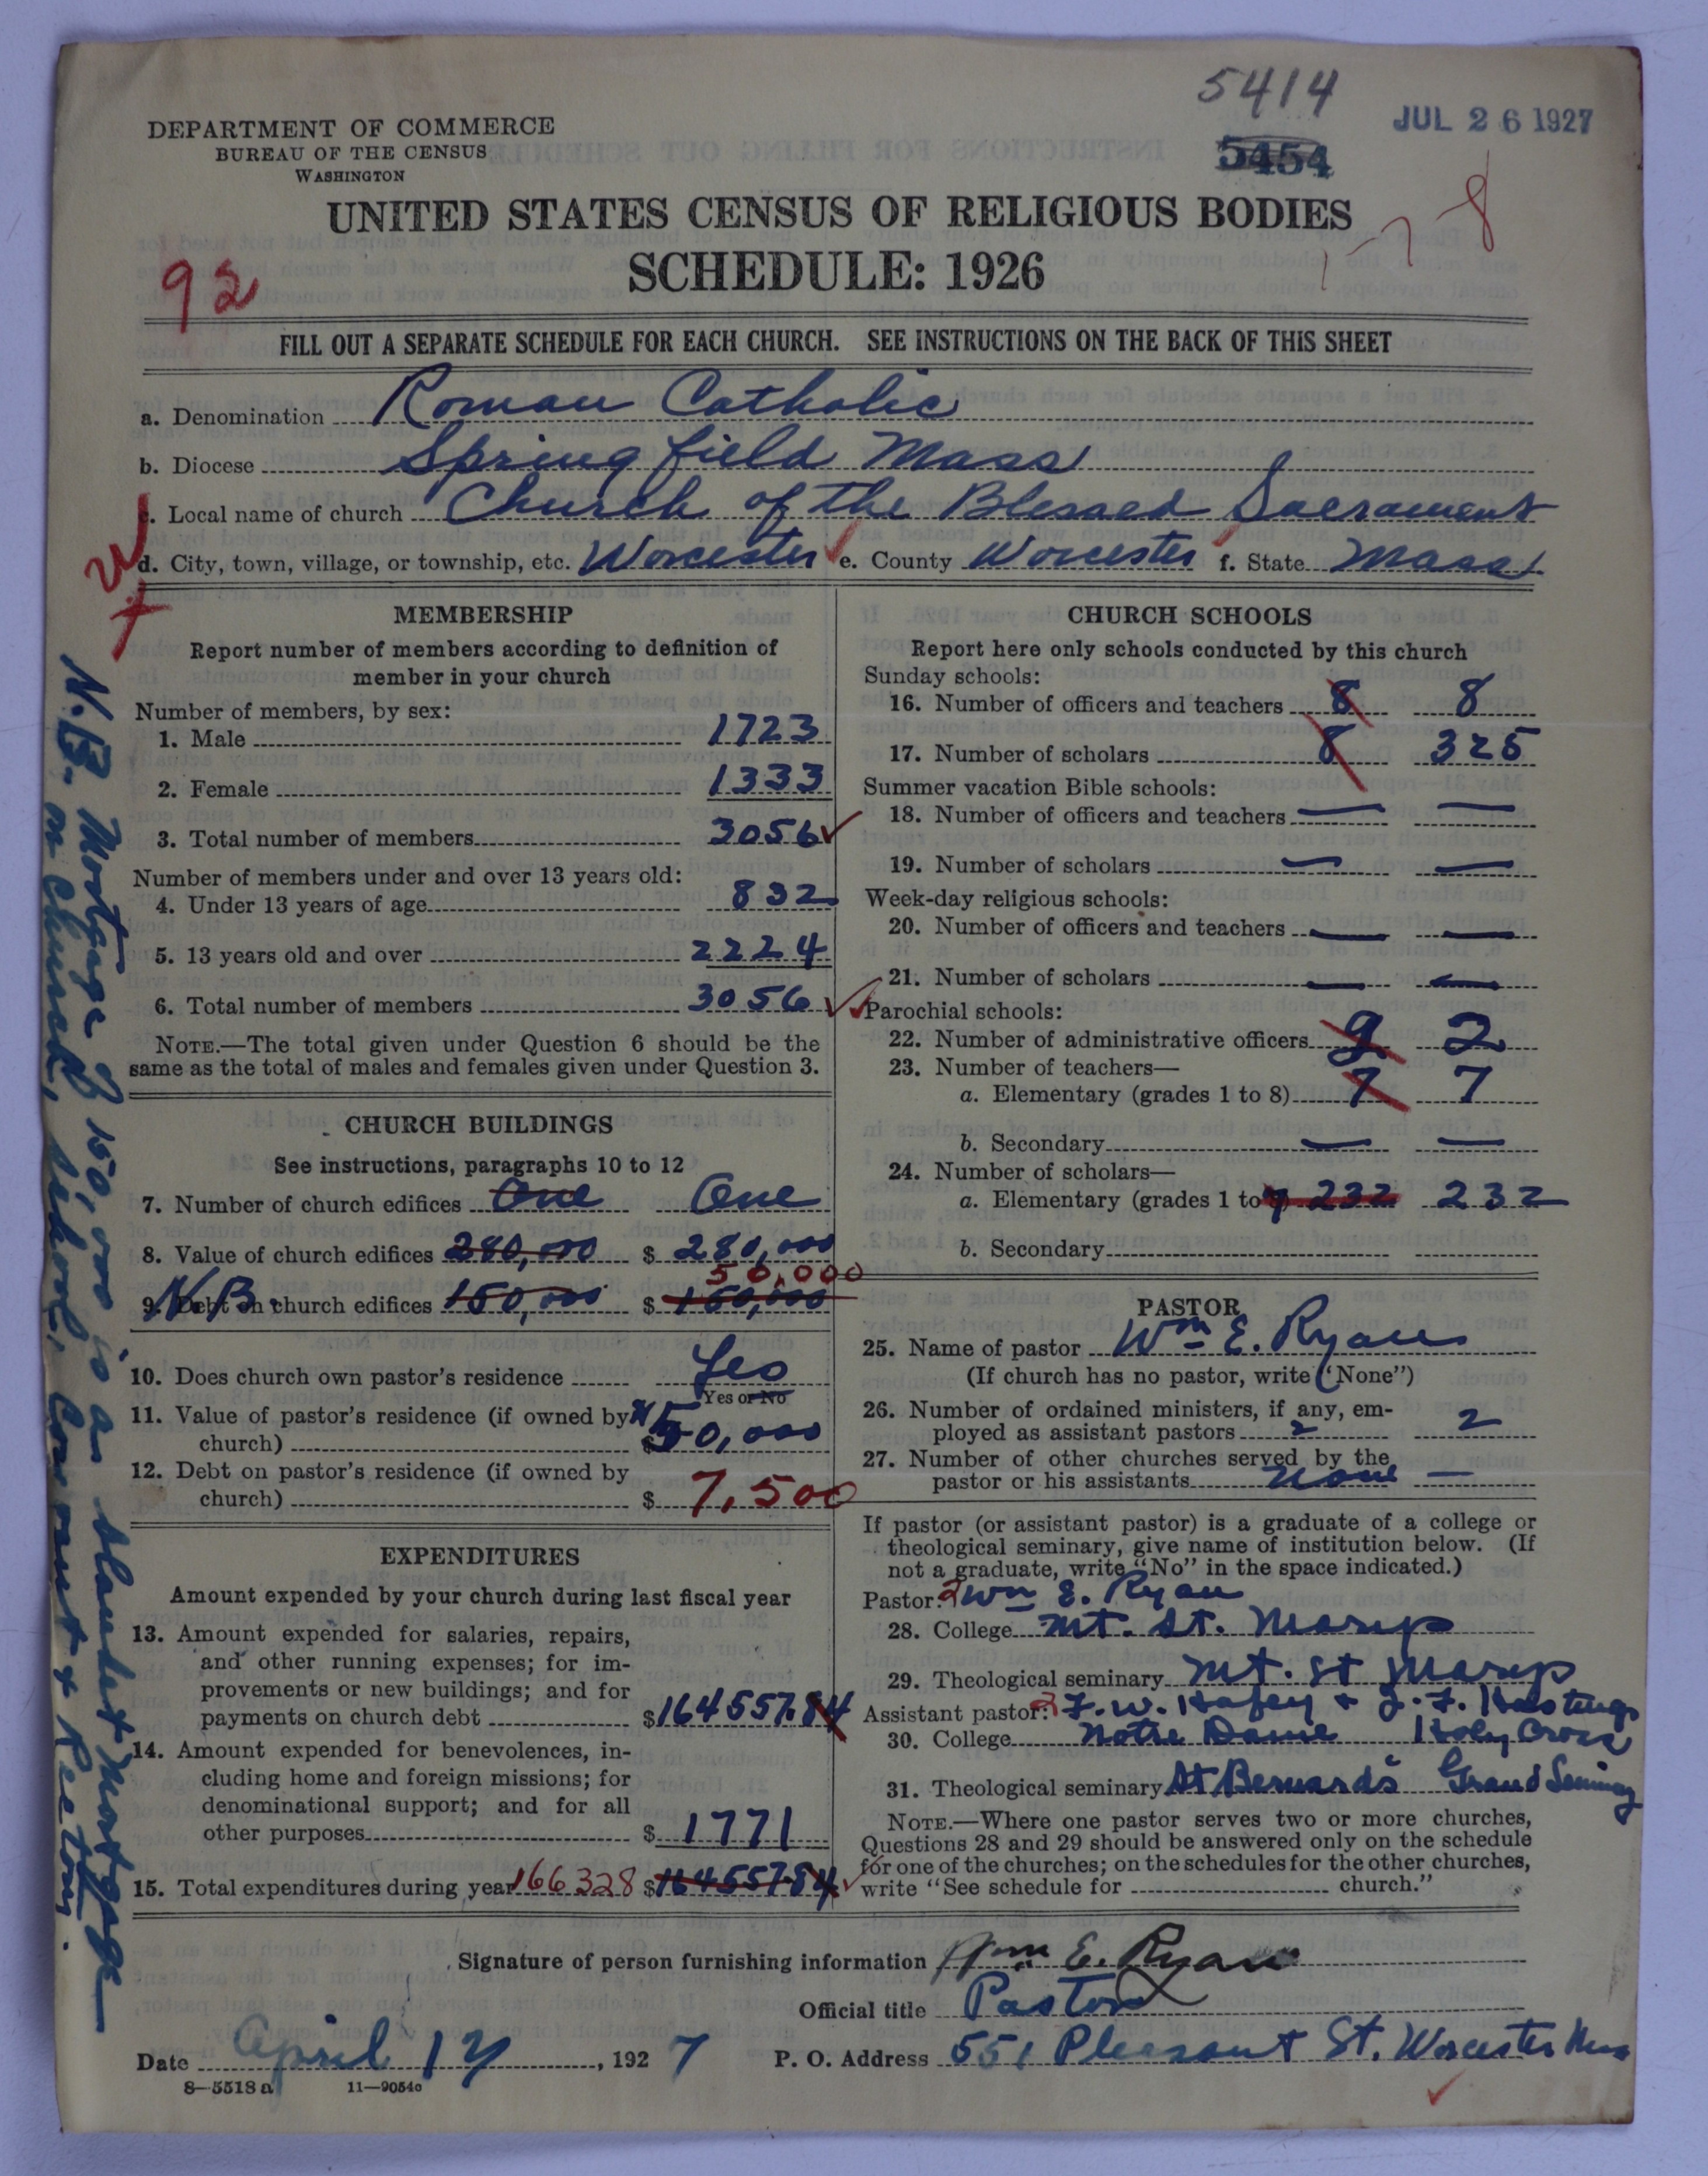 5414
JUL 26 1927
DEPARTMENT OF COMMERCE
BUREAU OF THE CENSUS
WASHINGTON
5454
UNITED STATES CENSUS OF RELIGIOUS BODIES
1-7 8
SCHEDULE: 1926
92
FILL OUT A SEPARATE SCHEDULE FOR EACH CHURCH. SEE INSTRUCTIONS ON THE BACK OF THIS SHEET
a. Denomination Roman Catholic
b. Diocese Springfield Mass
c. Local name of church Church of the Blessed Sacrament
d. City, town, village, or township, etc. Worcester e. County Worcester f. State Mass
MEMBERSHIP
Report number of members according to definition of
member in your church
Number of members, by sex:
1. Male 1723
2. Female 1333
3. Total number of members 3056
Number of members under and over 13 years old:
4. Under 13 years of age 832
5. 13 years old and over 2224
6. Total number of members 3056
NOTE.—The total given under Question 6 should be the
same as the total of males and females given under Question 3.
CHURCH BUILDINGS
See instructions, paragraphs 10 to 12
7. Number of church edifices One One
8. Value of church edifices 280,000 $ 280,000
50,000
N.B. 9. Debt on church edifices 150,000 $ 150,000
10. Does church own pastor's residence Yes
Yes or No
11. Value of pastor's residence (if owned by
church) $ 50,000
12. Debt on pastor's residence (if owned by
church) $ 7,500
EXPENDITURES
Amount expended by your church during last fiscal year
13. Amount expended for salaries, repairs,
and other running expenses; for im-
provements or new buildings; and for
payments on church debt $ 164557.84
14. Amount expended for benevolences, in-
cluding home and foreign missions; for
denominational support; and for all
other purposes $ 1771
15. Total expenditures during year 166328 $ 164557.84
CHURCH SCHOOLS
Report here only schools conducted by this church
Sunday schools:
16. Number of officers and teachers 8 8
17. Number of scholars 8 325
Summer vacation Bible schools:
18. Number of officers and teachers — —
19. Number of scholars — —
Week-day religious schools:
20. Number of officers and teachers — —
21. Number of scholars — —
Parochial schools:
22. Number of administrative officers 2 2
23. Number of teachers—
a. Elementary (grades 1 to 8) 7 7
b. Secondary — —
24. Number of scholars—
a. Elementary (grades 1 to 232 232
b. Secondary
PASTOR
25. Name of pastor Wm E. Ryan
(If church has no pastor, write "None")
26. Number of ordained ministers, if any, em-
ployed as assistant pastors 2 2
27. Number of other churches served by the
pastor or his assistants None —
If pastor (or assistant pastor) is a graduate of a college or
theological seminary, give name of institution below. (If
not a graduate, write "No" in the space indicated.)
Pastor: 2 Wm E. Ryan
28. College Mt. St. Marys
29. Theological seminary Mt. St Marys
Assistant pastor: 2 F. W. Hafey & J. F. Hastings
30. College Notre Dame Holy Cross
31. Theological seminary St Bernards Grand Seminary
NOTE.—Where one pastor serves two or more churches,
Questions 28 and 29 should be answered only on the schedule
for one of the churches; on the schedules for the other churches,
write "See schedule for church."
Signature of person furnishing information Wm E. Ryan
Official title Pastor
Date April 12, 1927 P. O. Address 551 Pleasant St. Worcester Mass
8—5518 a 11—9054c
N.B. Mortgage of 150,000 is a blanket mortgage
on Church, School, Convent & Rectory.